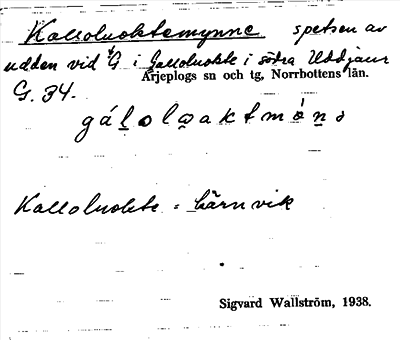 Kalloluoktemynne spetsen av
udden vid G i Galloluokte i södra Uddjaur
Arjeplogs sn och tg, Norrbottens län.
G. 34.
gáḷolo̯aktmȯṇə
Kalloluokte = bärnvik
Sigvard Wallström, 1938.